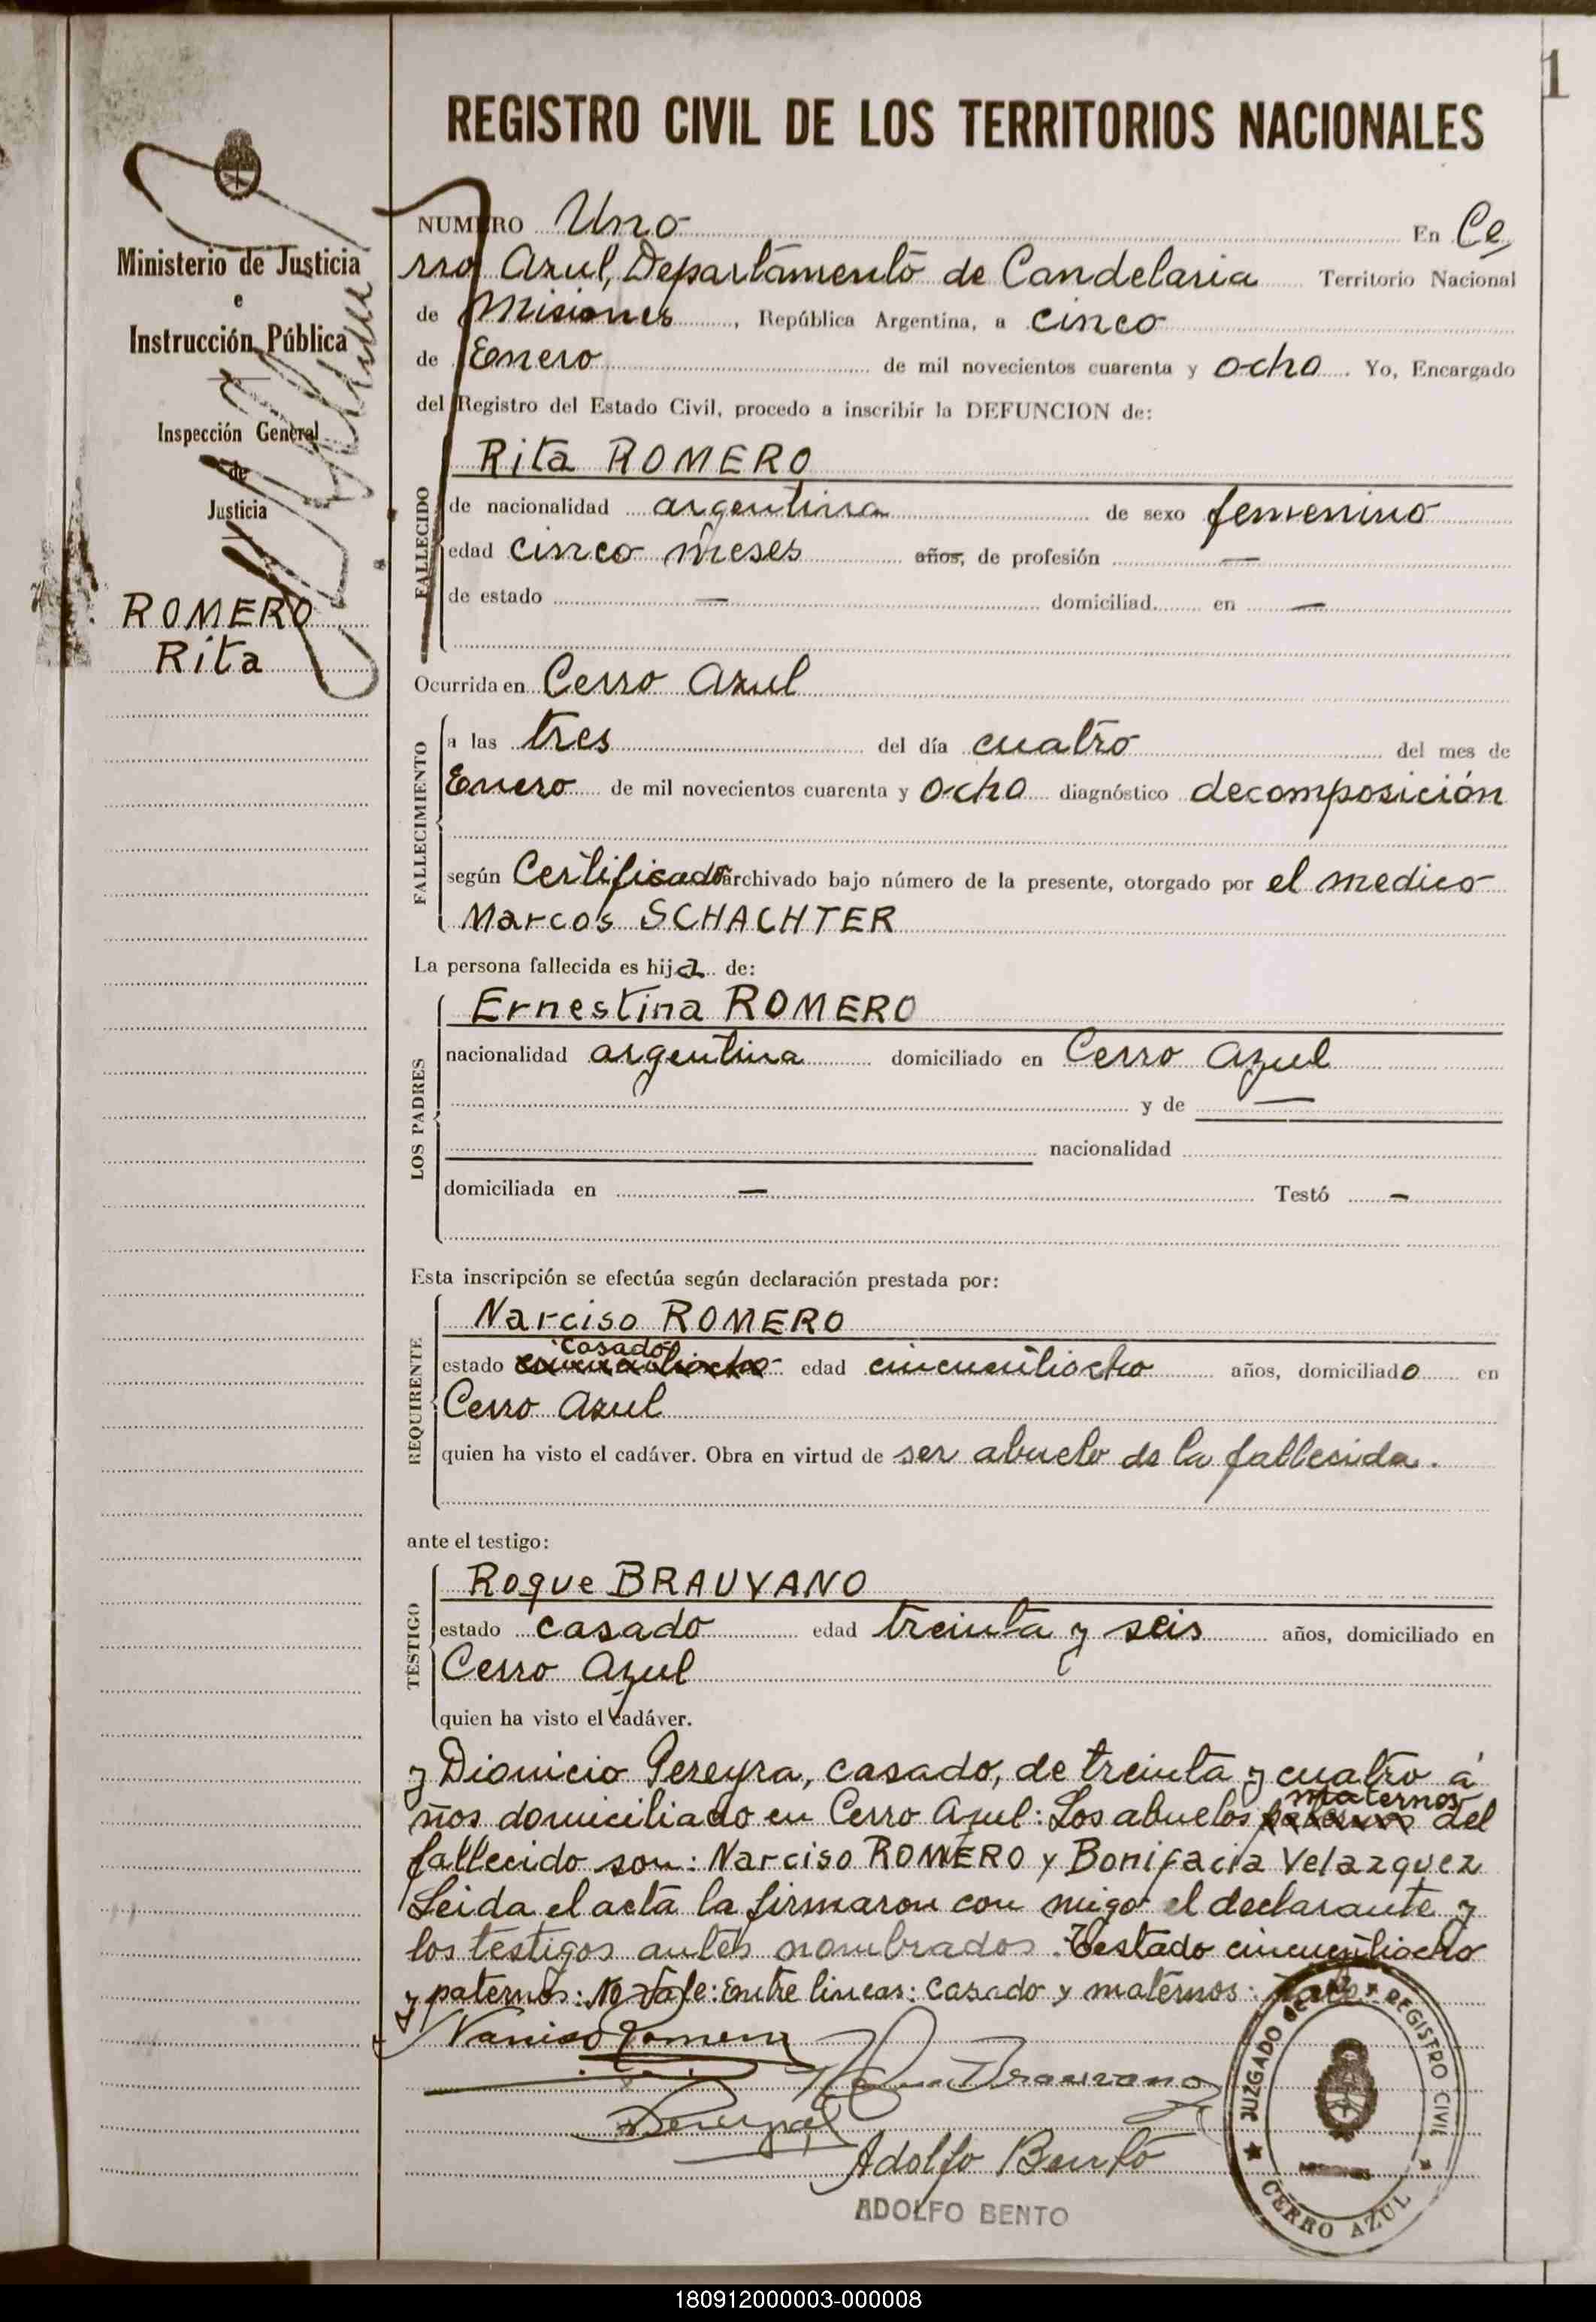 1
REGISTRO CIVIL DE LOS TERRITORIOS NACIONALES
Ministerio de Justicia
e
Instrucción Pública
Inspección General
de
Justicia
ROMERO
Rita
NUMERO Uno En Ce
rro Azul, Departamento de Candelaria Territorio Nacional
de Misiones, República Argentina, a cinco
de Enero de mil novecientos cuarenta y ocho. Yo, Encargado
del Registro del Estado Civil, procedo a inscribir la DEFUNCION de:
FALLECIDO
Rita ROMERO
de nacionalidad argentina de sexo femenino
edad cinco meses años, de profesión —
de estado — domiciliad en —
Ocurrida en Cerro Azul
FALLECIMIENTO
a las tres del día cuatro del mes de
Enero de mil novecientos cuarenta y ocho diagnóstico decomposición
según Certificado archivado bajo número de la presente, otorgado por el medico
Marcos SCHACHTER
La persona fallecida es hija de:
LOS PADRES
Ernestina ROMERO
nacionalidad argentina domiciliado en Cerro Azul
y de —
nacionalidad
domiciliada en — Testó —
Esta inscripción se efectúa según declaración prestada por:
REQUIRENTE
Narciso ROMERO
casado
estado cincuentiocho edad cincuentiocho años, domiciliado en
Cerro Azul
quien ha visto el cadáver. Obra en virtud de ser abuelo de la fallecida.
ante el testigo:
TESTIGO
Roque BRAUVANO
estado casado edad treinta y seis años, domiciliado en
Cerro Azul
quien ha visto el cadáver.
y Dionicio Pereyra, casado, de treinta y cuatro a
maternos
ños domiciliado en Cerro Azul: Los abuelos paternos del
fallecido son: Narciso ROMERO y Bonifacia Velazquez
Leida el acta la firmaron con migo el declarante y
los testigos antes nombrados. Testado cincuentiocho
y paternos: No Vale: Entre lineas: casado y maternos: Vale.
Narciso Romero
Brauvano
Pereyra
Adolfo Bento
ADOLFO BENTO
JUZGADO DE PAZ Y REGISTRO CIVIL
CERRO AZUL
180912000003-000008